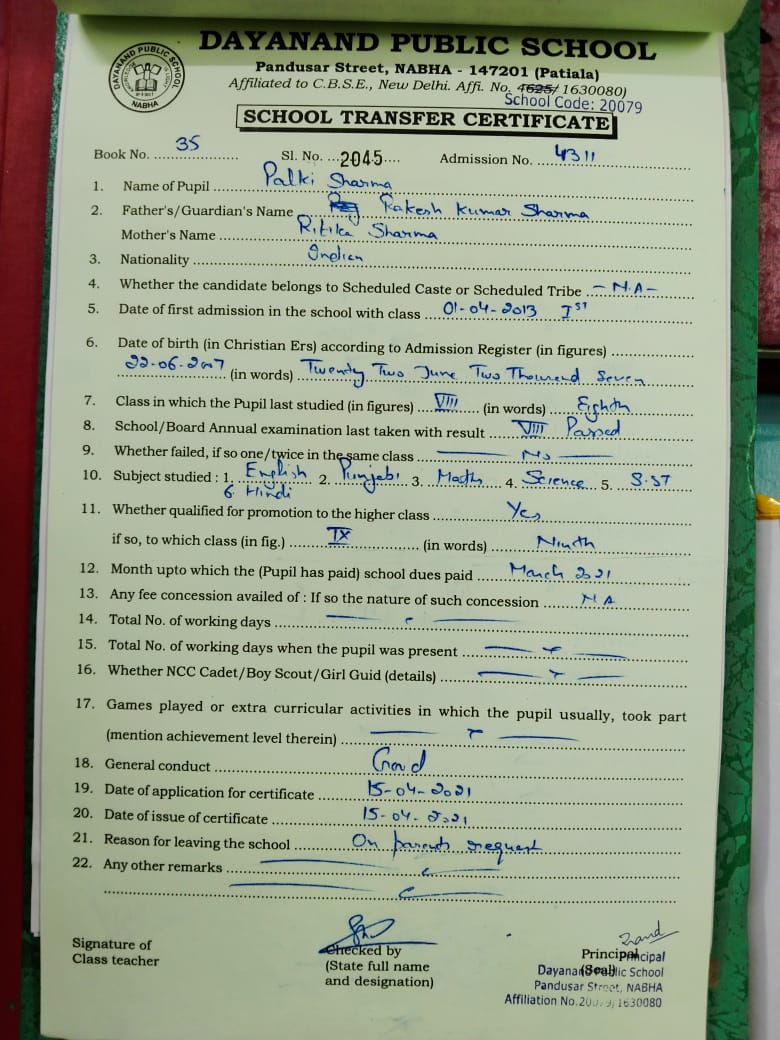 DAYANAND PUBLIC SCHOOL
DAYANAND PUBLIC SCHOOL
NABHA
Pandusar Street, NABHA - 147201 (Patiala)
Affiliated to C.B.S.E., New Delhi. Affi. No. 4625/ 1630080)
School Code: 20079
SCHOOL TRANSFER CERTIFICATE
Book No. 35 Sl. No. 2045 Admission No. 4311
1. Name of Pupil Palki Sharma
2. Father's/Guardian's Name Rakesh Kumar Sharma
Mother's Name Ritika Sharma
3. Nationality Indian
4. Whether the candidate belongs to Scheduled Caste or Scheduled Tribe - N.A -
5. Date of first admission in the school with class 01-04-2013 Ist
6. Date of birth (in Christian Ers) according to Admission Register (in figures)
22-06-2007 (in words) Twenty Two June Two Thousand Seven
7. Class in which the Pupil last studied (in figures) VIII (in words) Eighth
8. School/Board Annual examination last taken with result VIII Passed
9. Whether failed, if so one/twice in the same class No
10. Subject studied : 1. English 2. Punjabi 3. Maths 4. Science 5. S.ST
6. Hindi
11. Whether qualified for promotion to the higher class Yes
if so, to which class (in fig.) IX (in words) Ninth
12. Month upto which the (Pupil has paid) school dues paid March 2021
13. Any fee concession availed of : If so the nature of such concession N A
14. Total No. of working days
15. Total No. of working days when the pupil was present
16. Whether NCC Cadet/Boy Scout/Girl Guid (details)
17. Games played or extra curricular activities in which the pupil usually, took part
(mention achievement level therein)
18. General conduct Good
19. Date of application for certificate 15-04-2021
20. Date of issue of certificate 15-04-2021
21. Reason for leaving the school On parents request
22. Any other remarks
Signature of
Class teacher
Checked by
(State full name
and designation)
Principal
(Seal)
Principal
Dayanand Public School
Pandusar Street, NABHA
Affiliation No.20079/1630080